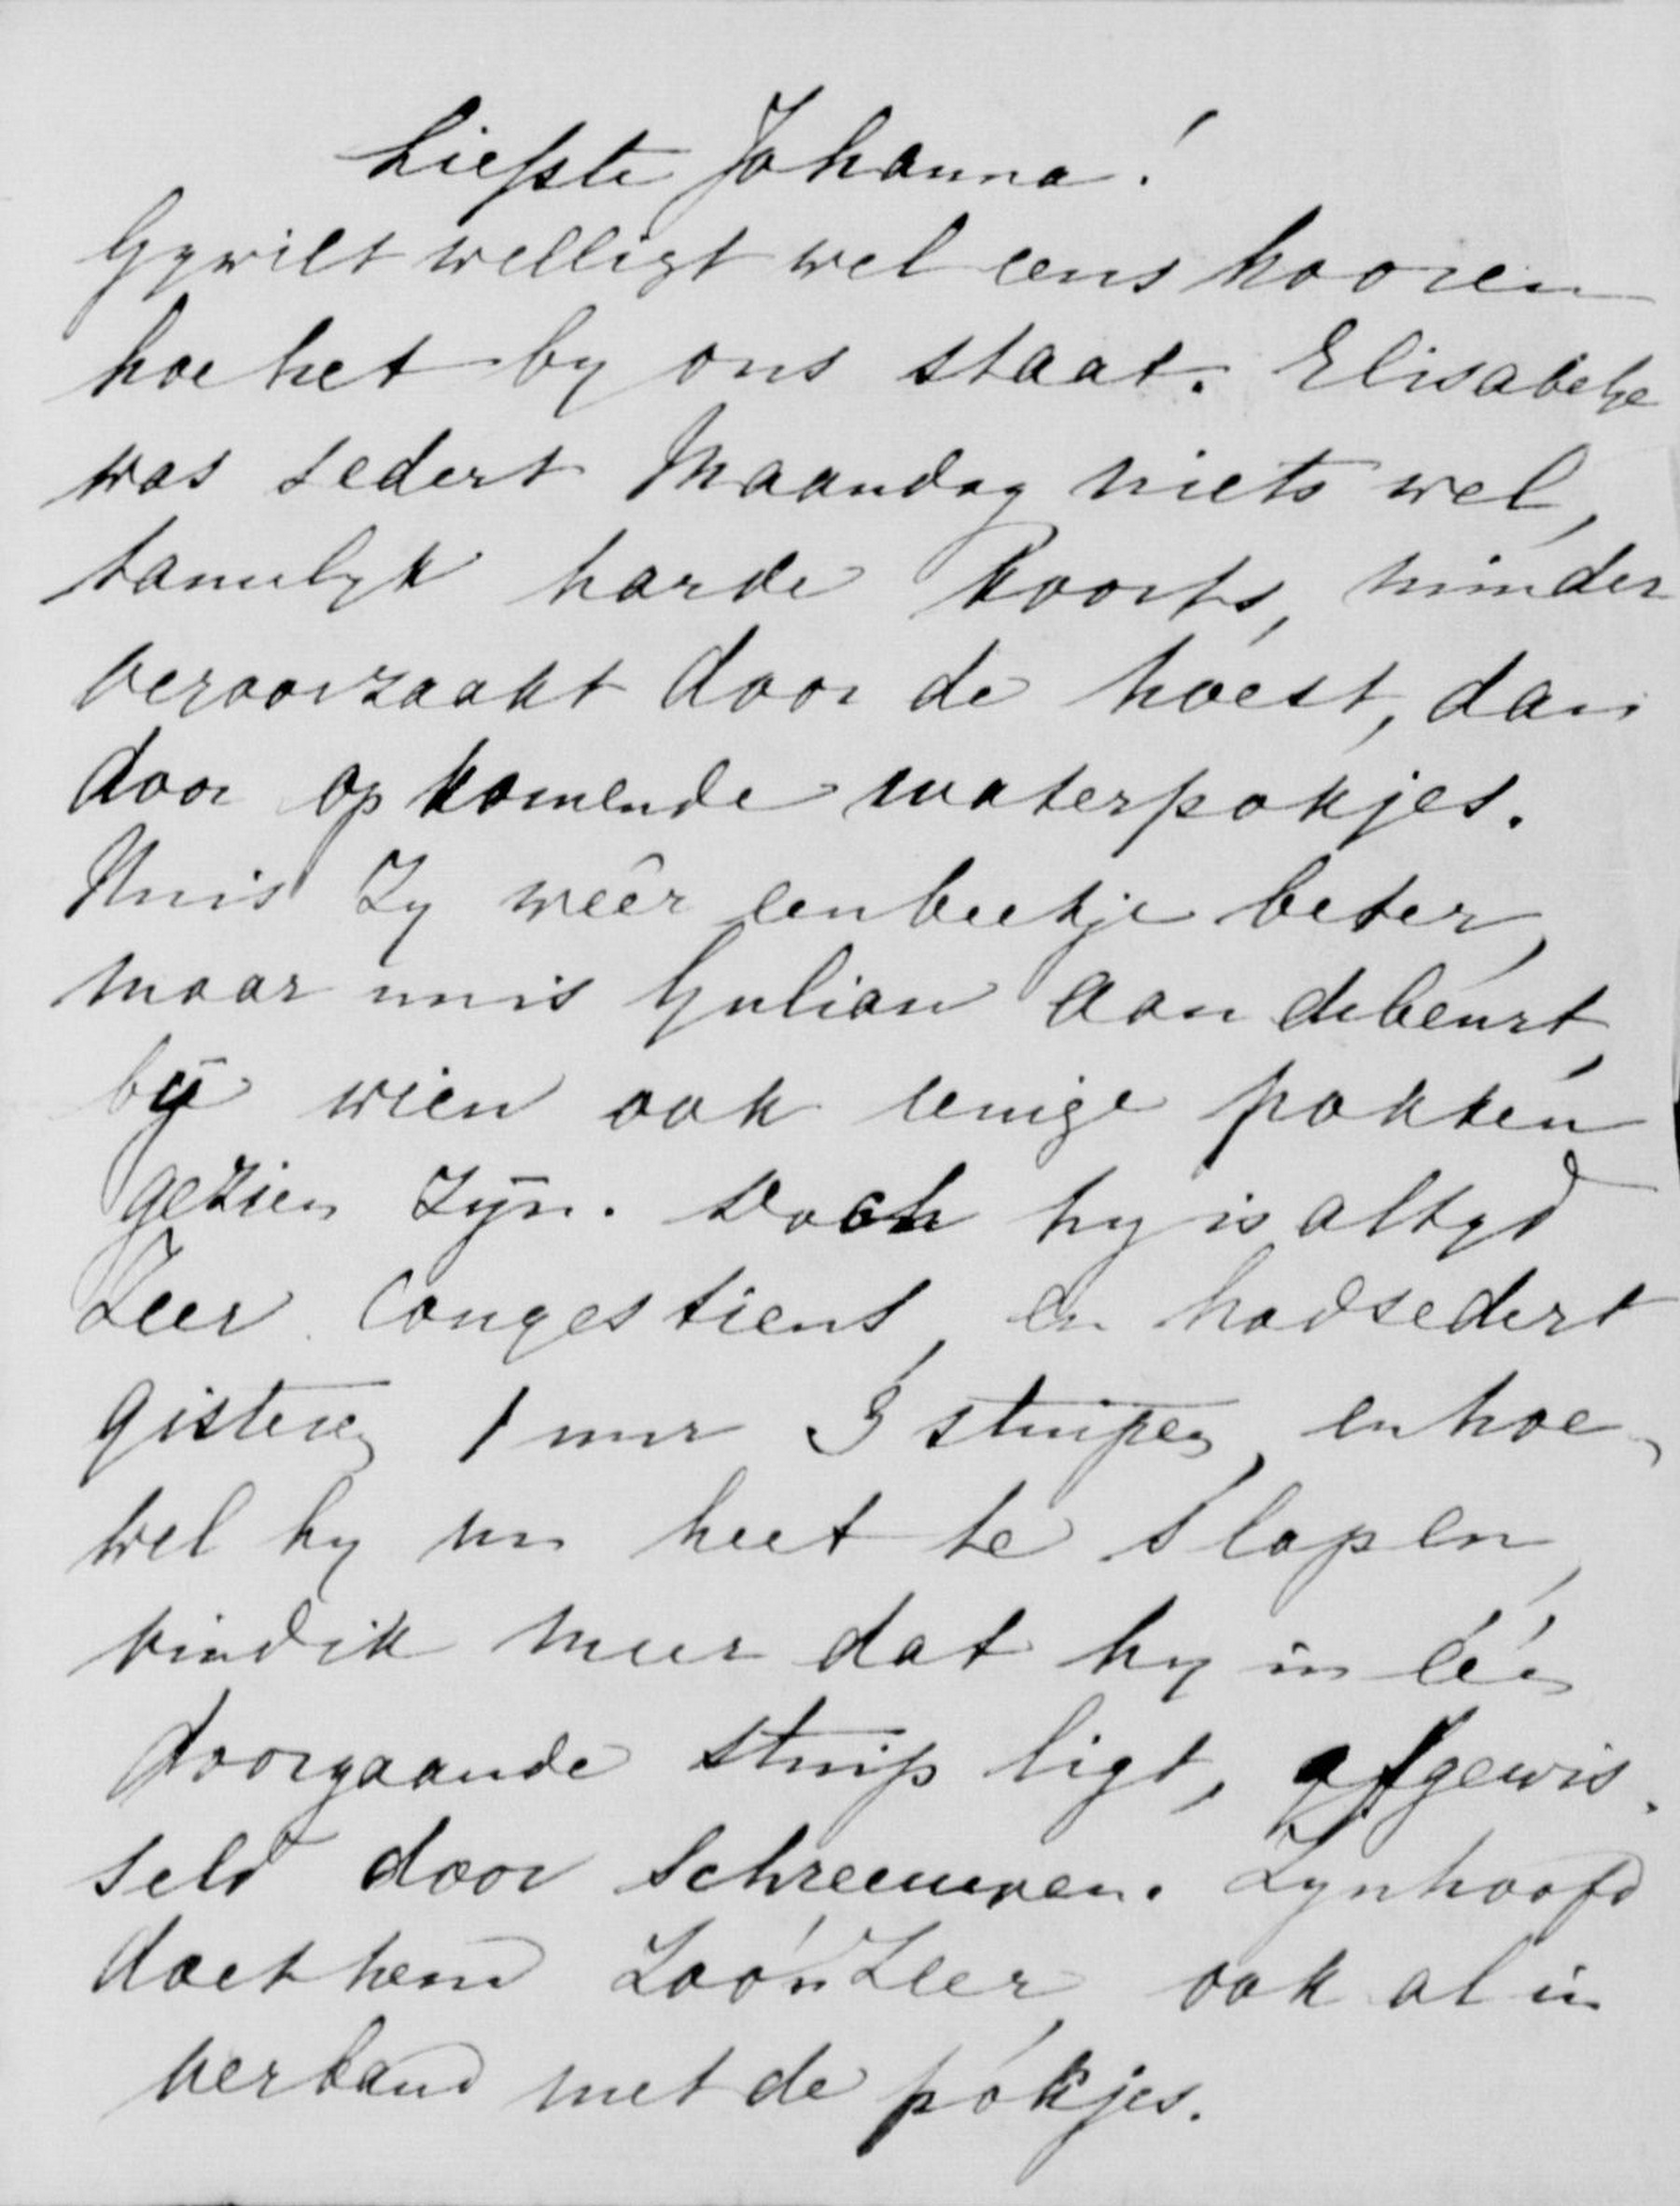 Liefste Johanna!
Gy wilt welligt wel eens hooren
hoe het by ons staat. Elisabethje
was sedert Maandag niets wel,
tamelyk harde koorts, minder
veroorzaakt door de hoest, dan
door opkomende waterpokjes.
Nu is zy weêr een beetje beter,
maar nu is Gulian aan de beurt,
bÿ wien ook eenige pokken
gezien zÿn. Doch hy is altyd
zeer congestieus, en had sedert
gisteren 1 uur 3 stuipen, en hoe
wel hy nu heet te slapen,
vind ik meer dat hy in één
doorgaande stuip ligt, afgewis.
seld door schreeuwen. Zyn hoofd
doet hem zoó'n zeer, ook al in
verband met de pokjes.